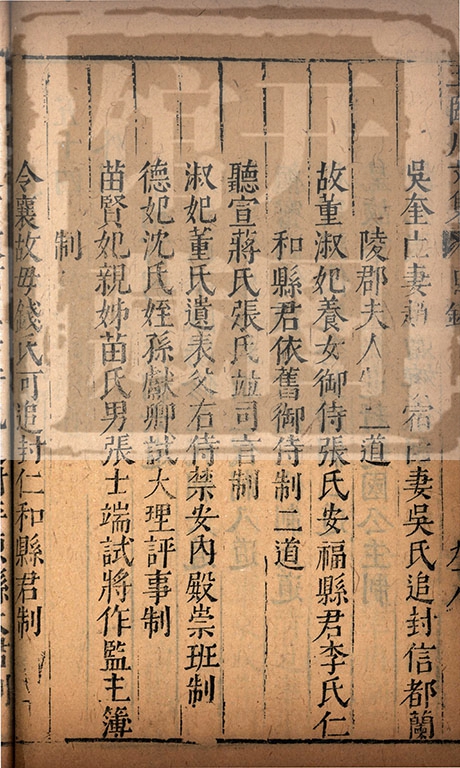 吳奎亡妻趙氏宿亡妻吳氏追封信都蘭
陵郡夫人制二道
故董淑妃養女御侍張氏安福縣君李氏仁
和縣君依舊御侍制二道
聽宣蔣氏張氏並司言制
淑妃董氏遺表父右侍禁安內殿崇班制
德妃沈氏姪孫獻卿試大理評事制
苗賢妃親姊苗氏男張士端試將作監主簿
制
令襄故母錢氏可追封仁和縣君制